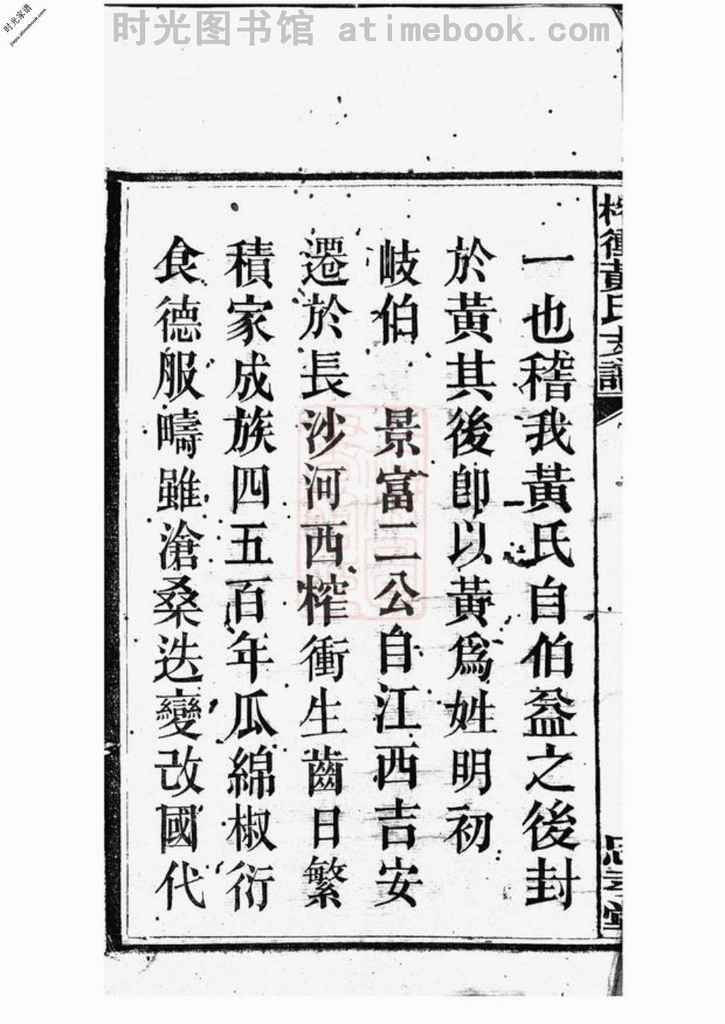 时光图书馆 atimebook.com
时光家谱
一也稽我黃氏自伯益之後封
於黃其後卽以黃爲姓明初
岐伯　景富二公自江西吉安
遷於長沙河西榨衝生齒日繁
積家成族四五百年瓜綿椒衍
食德服疇雖滄桑迭變改國代